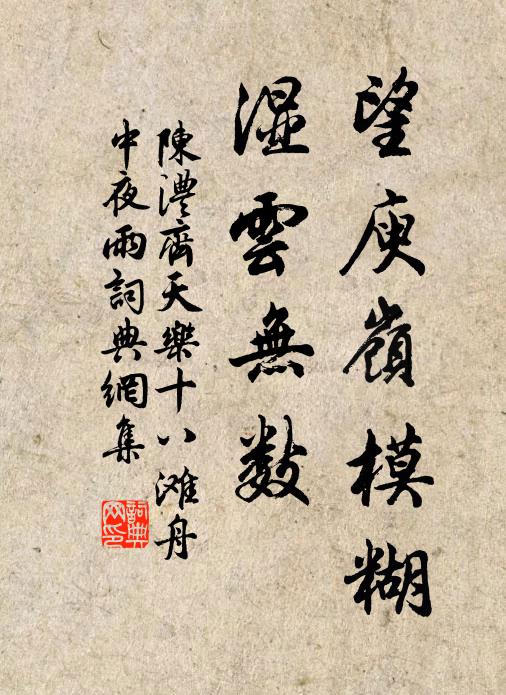 望庾嶺模糊
湿雲無數
陳澧齊天樂十八灘舟
中夜雨詞典網集
詞典
网印